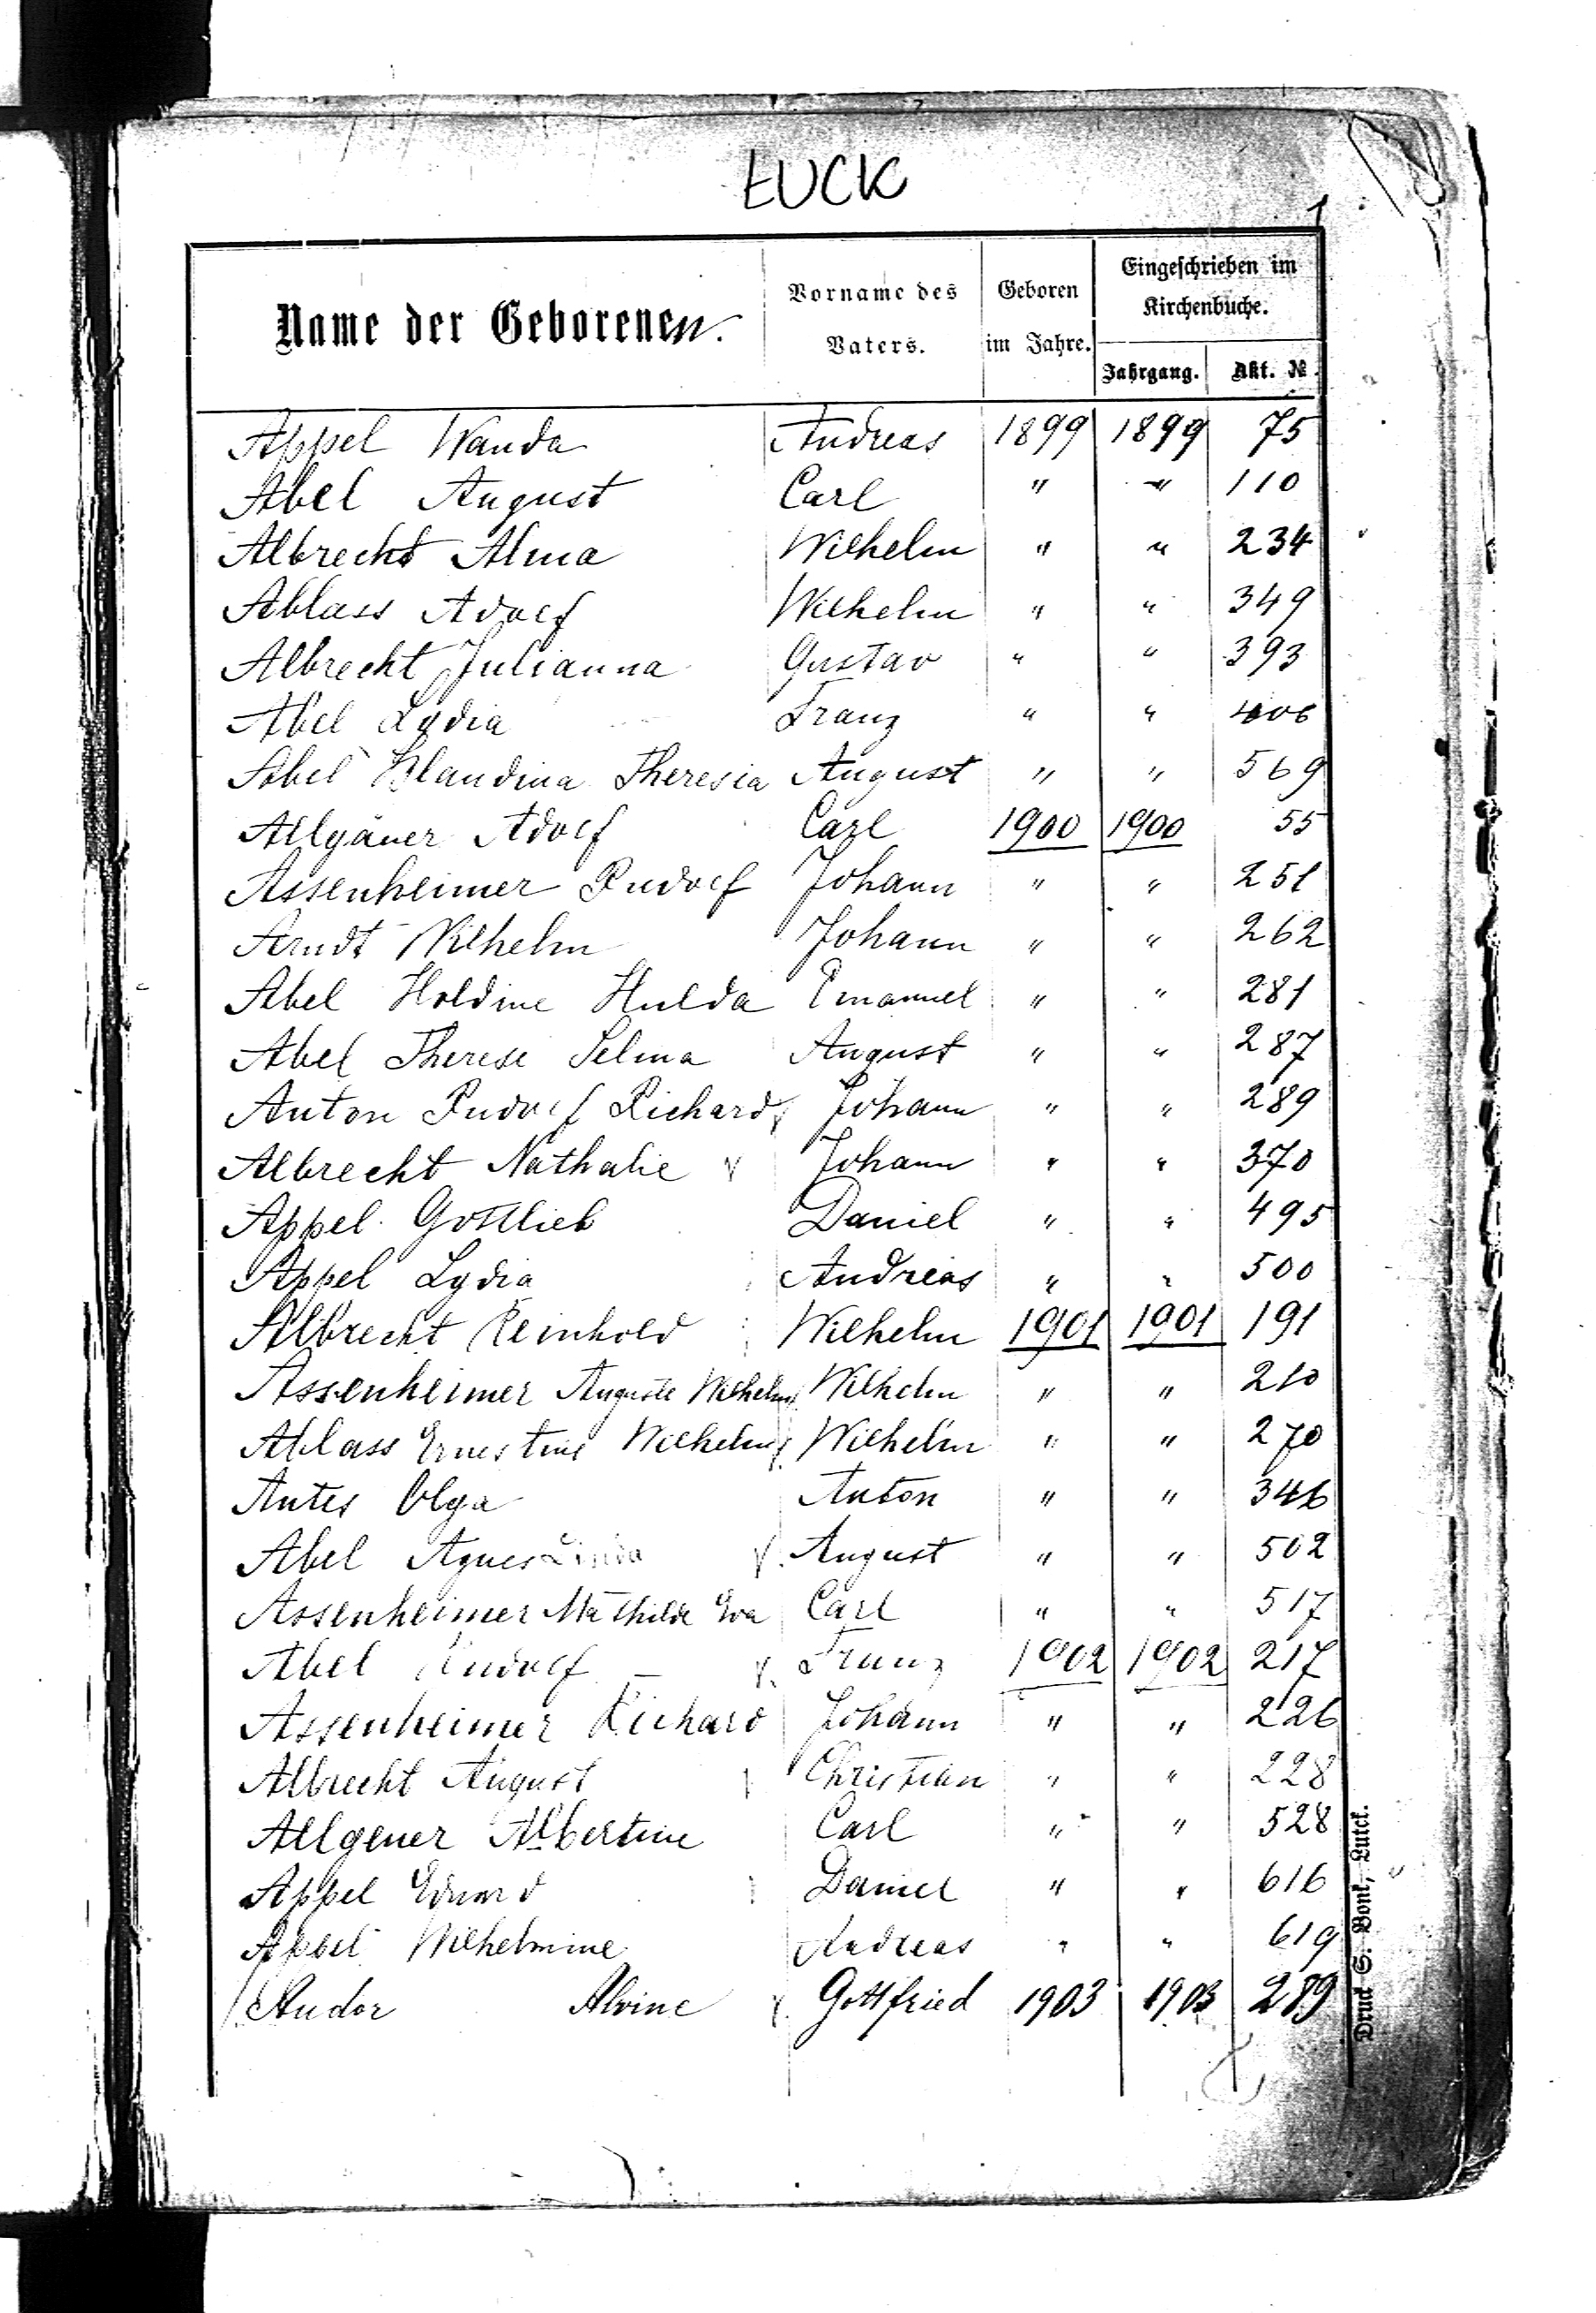 ŁUCK
1
Name der Geborenen. Vorname des Vaters. Geboren im Jahre. Eingeschrieben im Kirchenbuche.
Jahrgang. Akt. №
Appel Wanda Andreas 1899 1899 75
Abel August Carl " " 110
Albrecht Alma Wilhelm " " 234
Ablass Adolf Wilhelm " " 349
Albrecht Julianna Gustav " " 393
Abel Lydia Franz " " 406
Abel Blandina Theresia August " " 569
Allgäuer Adolf Carl 1900 1900 55
Assenheimer Rudolf Johann " " 251
Arndt Wilhelm Johann " " 262
Abel Holdine Hulda Emanuel " " 281
Abel Therese Selma August " " 287
Anton Rudolf Richard Johann " " 289
Albrecht Nathalie Johann " " 370
Appel Gottlieb Daniel " " 495
Appel Lydia Andreas " " 500
Albrecht Reinhold Wilhelm 1901 1901 191
Assenheimer Auguste Wilhelm Wilhelm " " 210
Ablass Ernestine Wilhelm " " 270
Antes Olga Anton " " 346
Abel Agnes Linda August " " 502
Assenheimer Mathilde Eva Carl " " 517
Abel Rudolf Franz 1902 1902 217
Assenheimer Richard Johann " " 226
Albrecht August Christian " " 228
Allgeuer Albertine Carl " " 528
Appel Eduard Daniel " " 616
Appel Wilhelmine Andreas " " 619
Andor Alvine Gottfried 1903 1903 289
Druck S. Bonk, Lutck.